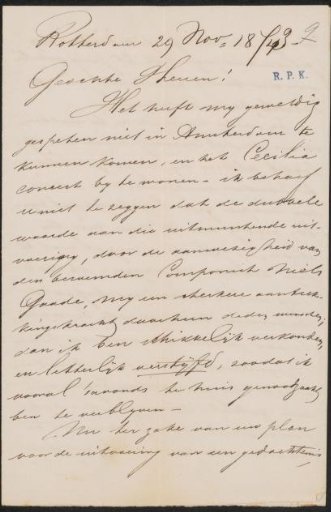 Rotterdam 29 Nov. 18
Geëerde Heeren!
R.P.K.
Het heeft my geweldig
gespeten niet in Amsterdam te
kunnen komen, en het Cecilia
concert by te wonen – ik behoef
U niet te zeggen dat de dubbele
waarde aan die uitmuntende uit-
voering, door de aanwezigheid van
den beroemden Componist Niels
Gaade, my een sterkere aantrek-
kingskracht daarheen deden
dan ik ben schrikkelijk verkouden
en letterlijk verstyfd, zoodat ik
vooral 's avonds te huis genoodzaakt
ben te verblyven –
Nu ter zake van uw plan
voor de uitvoering van een gedachtenis